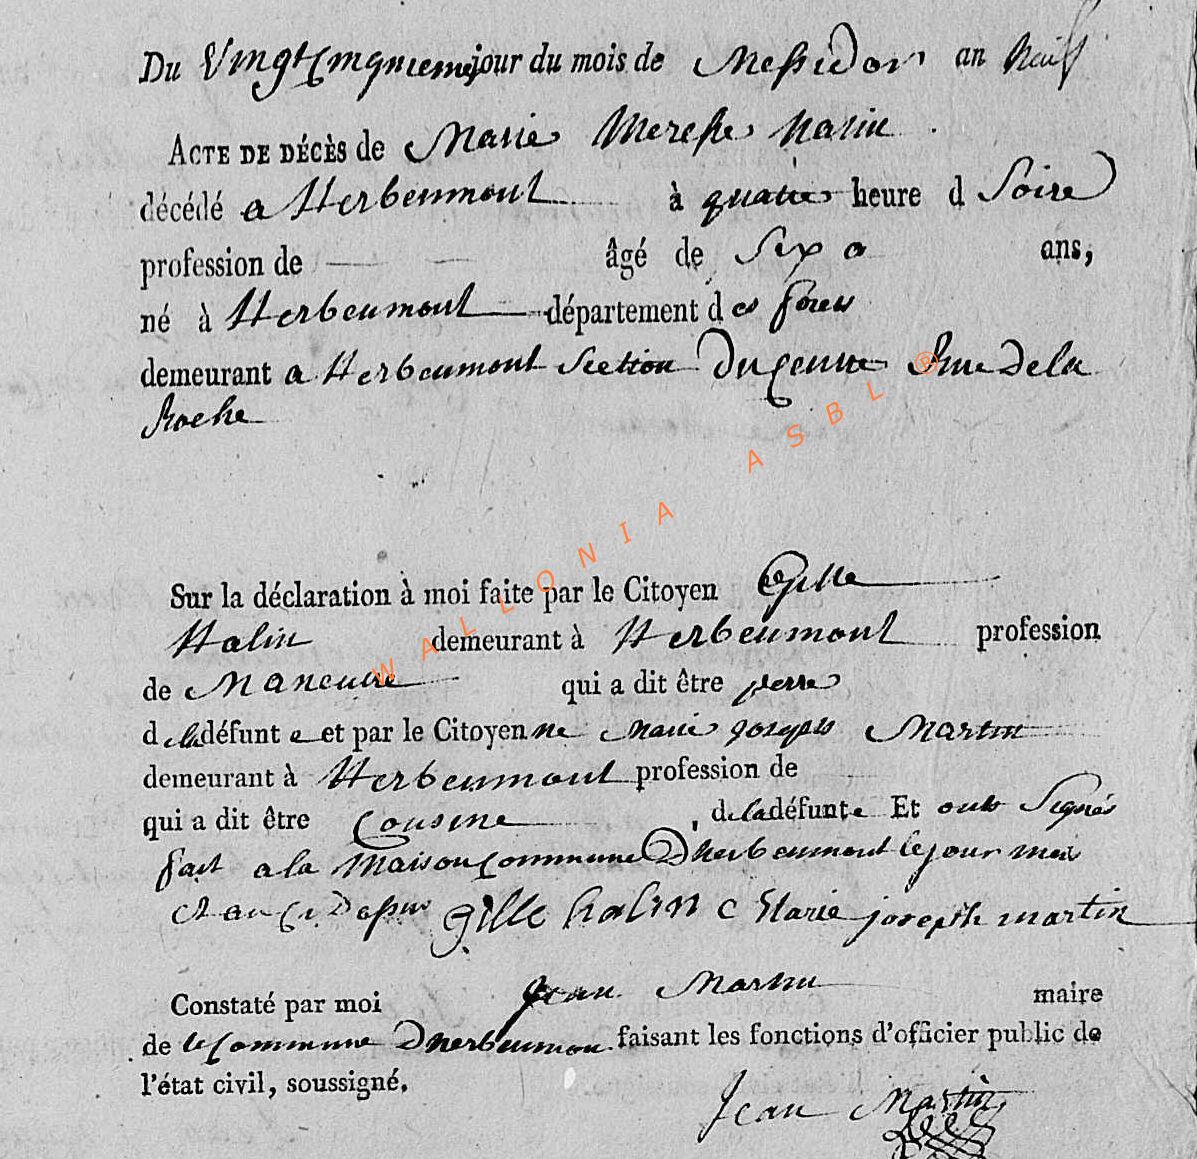 Du Vingtcinquieme jour du mois de Messidor an neuf
ACTE DE DÉCÈS de Marie halin
décédé a Herbeumont à quatre heure d Soire
profession de âgé de Six a ans,
né à Herbeumont département des forets
demeurant a Herbeumont Section Du Rue de la
Roche
Sur la déclaration à moi faite par le Citoyen Gille
Halin demeurant à Herbeumont profession
de Maneuvre qui a dit être perre
d la défunte et par le Citoyenne Marie joseph Martin
demeurant à Herbeumont profession de
qui a dit être Cousine , de la défunte Et onts Signés
fait a la Maison Commune Dherbeumont le jour mois
et an Ci Desu gille halin Marie joseph martin
Constaté par moi Jean Martin maire
de le Commune Dherbeumon faisant les fonctions d'officier public de
l'état civil, soussigné.
Jean Martin
WALLONIA ASBL ®